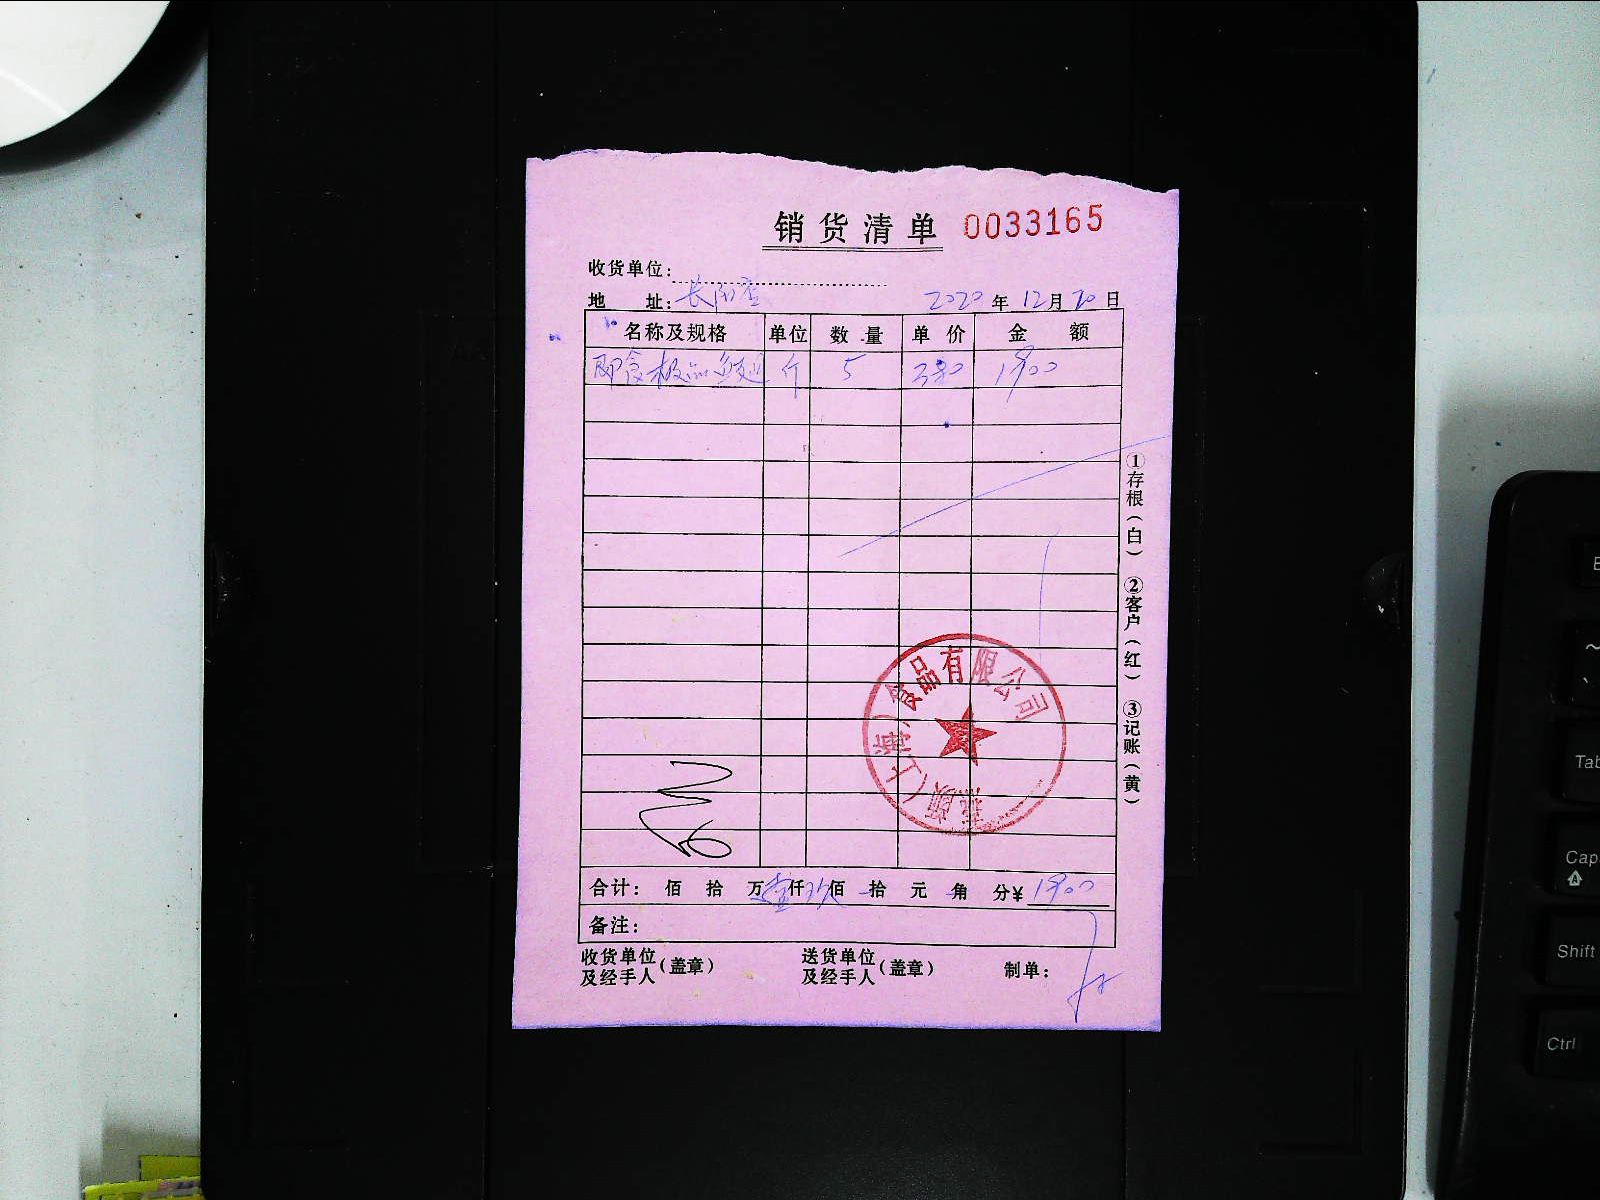 销货清单 0033165
收货单位：
地 址：长阳店 2020年12月20日
名称及规格 单位 数量 单价 金额
即食极品 斤 5 380 1900
合计： 佰 拾 万壹仟玖佰 拾 元 角 分¥1900
备注：
收货单位及经手人（盖章） 送货单位及经手人（盖章） 制单：
①存根（白） ②客户（红） ③记账（黄）
颜（上海）食品有限公司
Tab
Shift
Ctrl